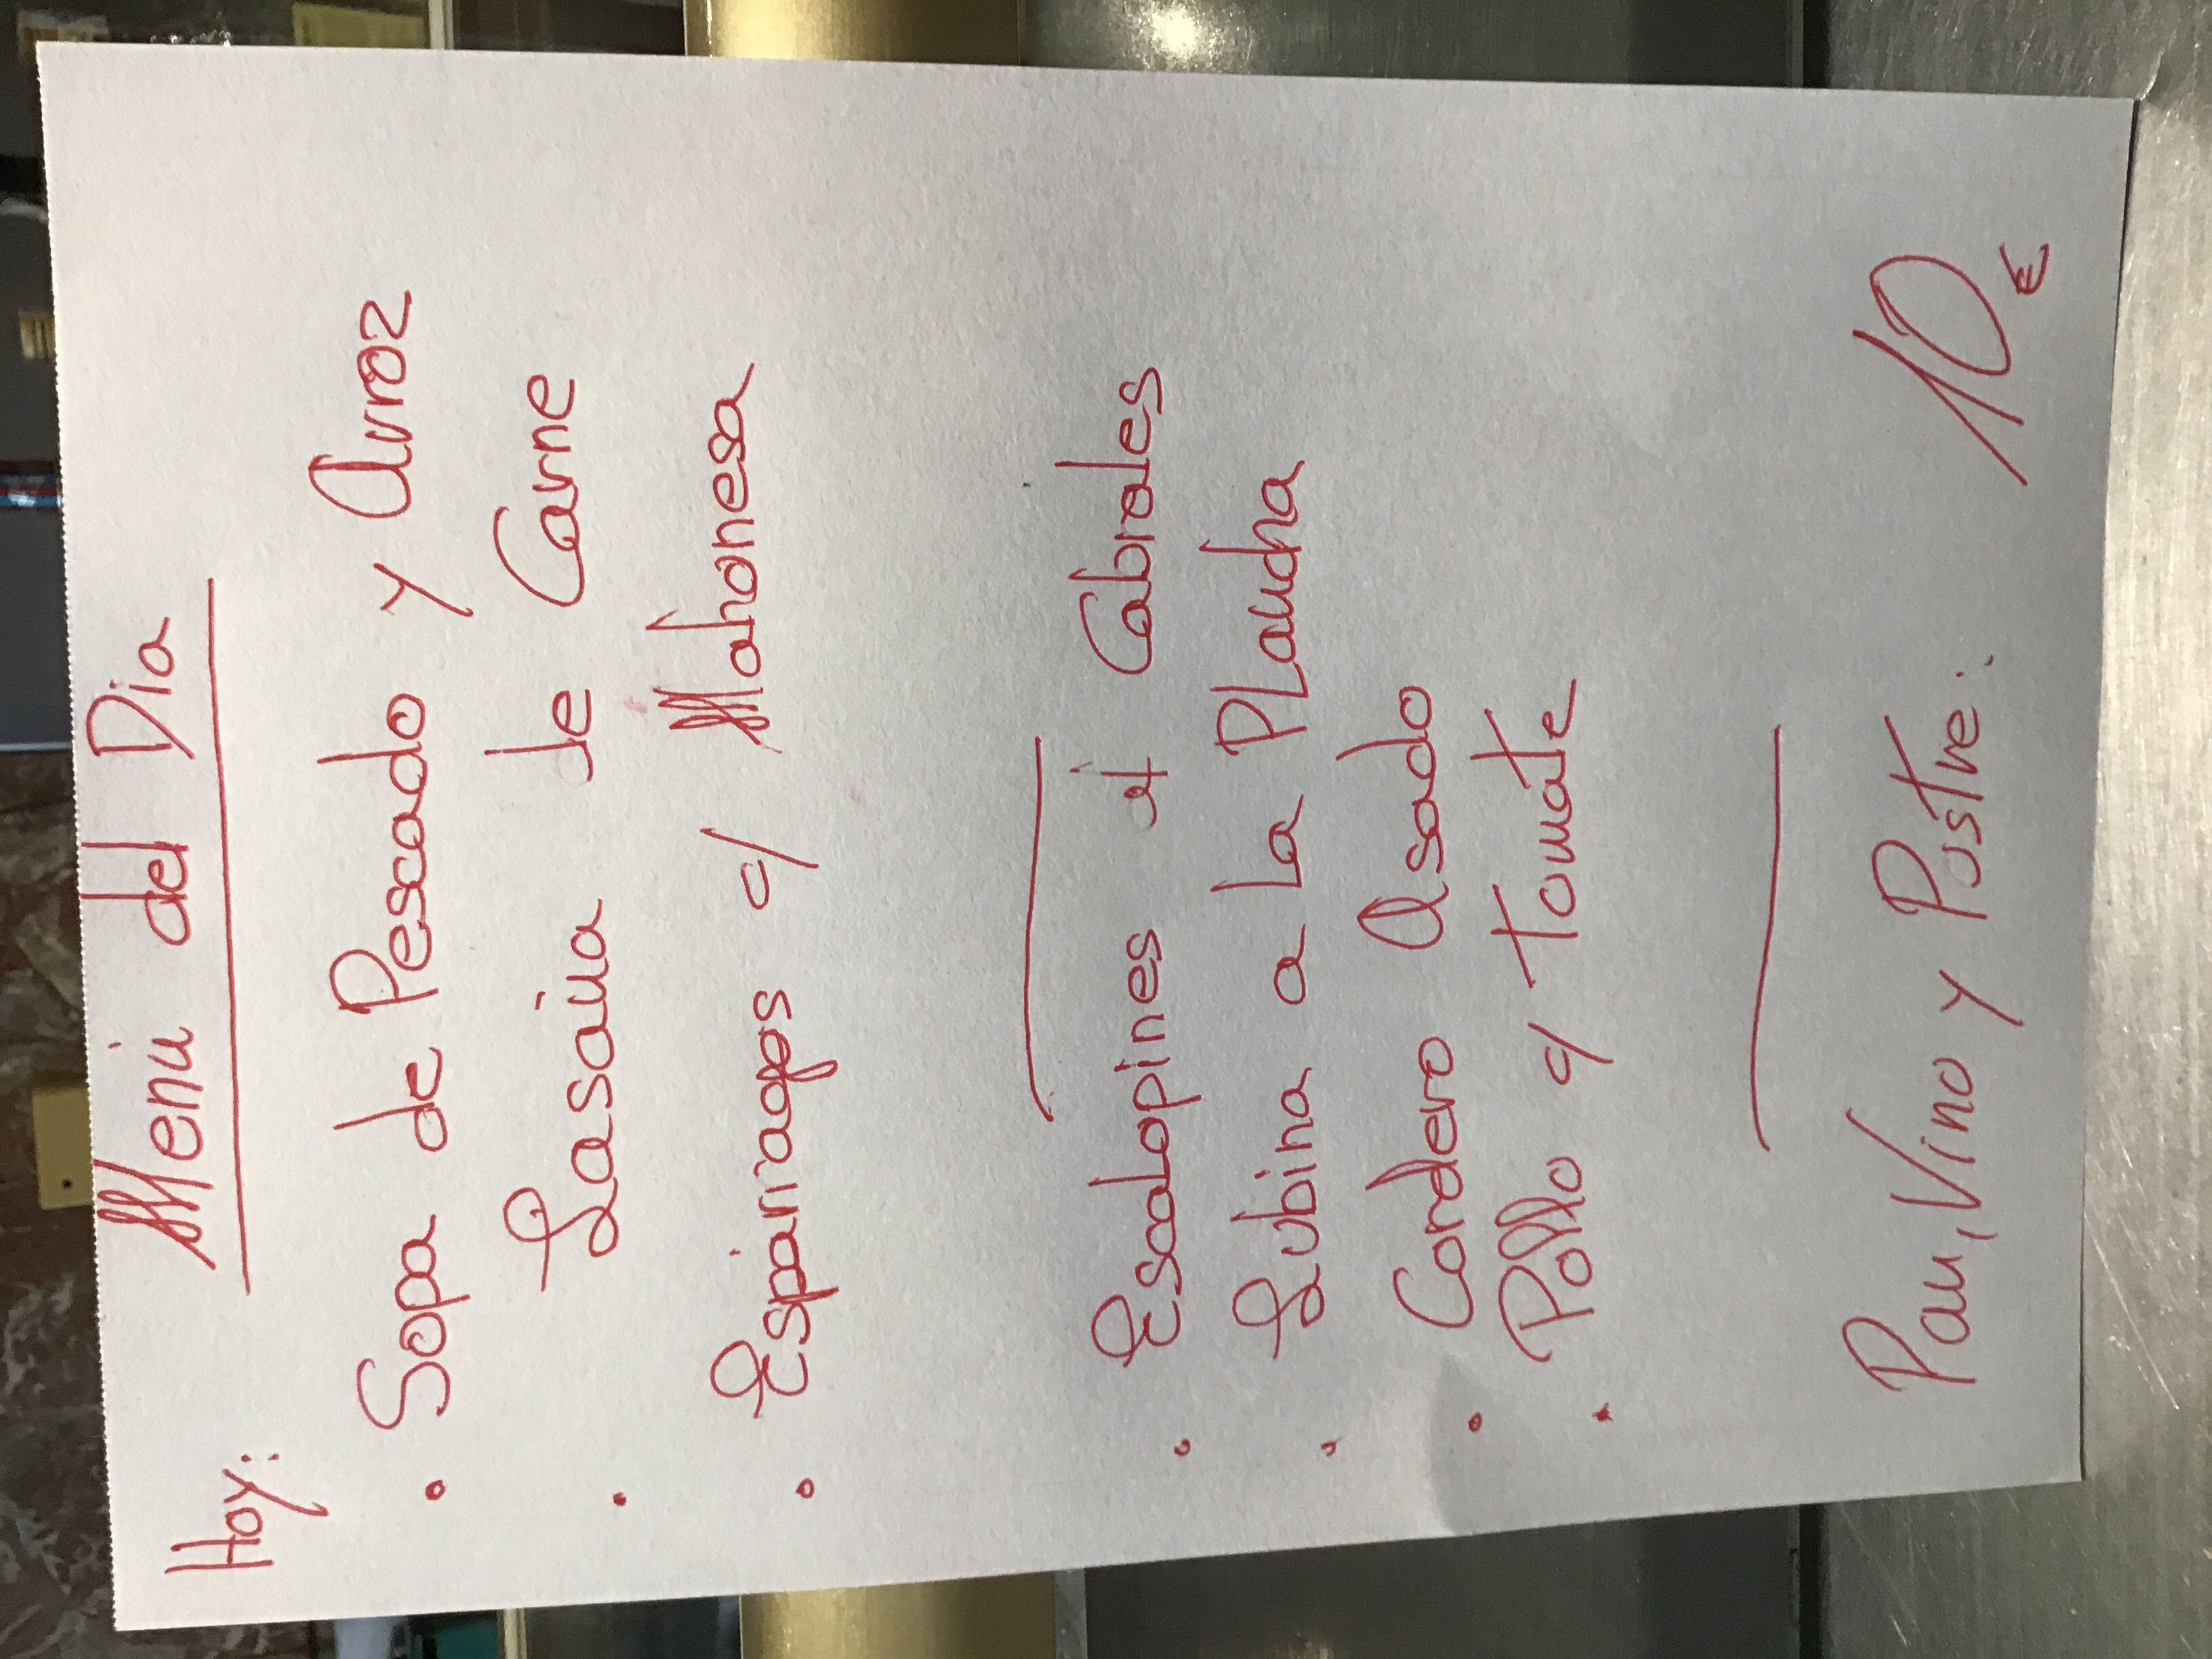 Hoy:
Menú del Dia
• Sopa de Pescado y Arroz
• Lasaña de Carne
• Espárragos c/ Mahonesa
• Escalopines al Cabrales
• Lubina a La PLancha
• Cordero Asado
• Pollo c/ Tomate
Pan, Vino y Postre: 10€